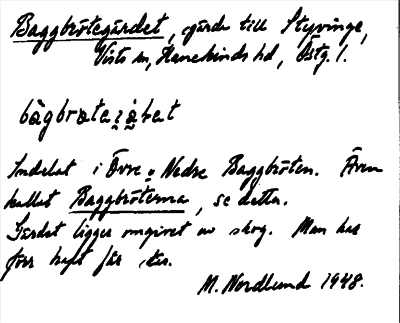 Baggbrötegärdet, gärde till Styvinge,
Vists sn, Hanekinds hd, Östg. l.
Indelat i Övre o Nedre Baggbröten. Även
kallat Baggbröterna, se detta.
Gärdet ligger omgivet av skog. Man har
förr haft får där.
M. Nordlund 1948.